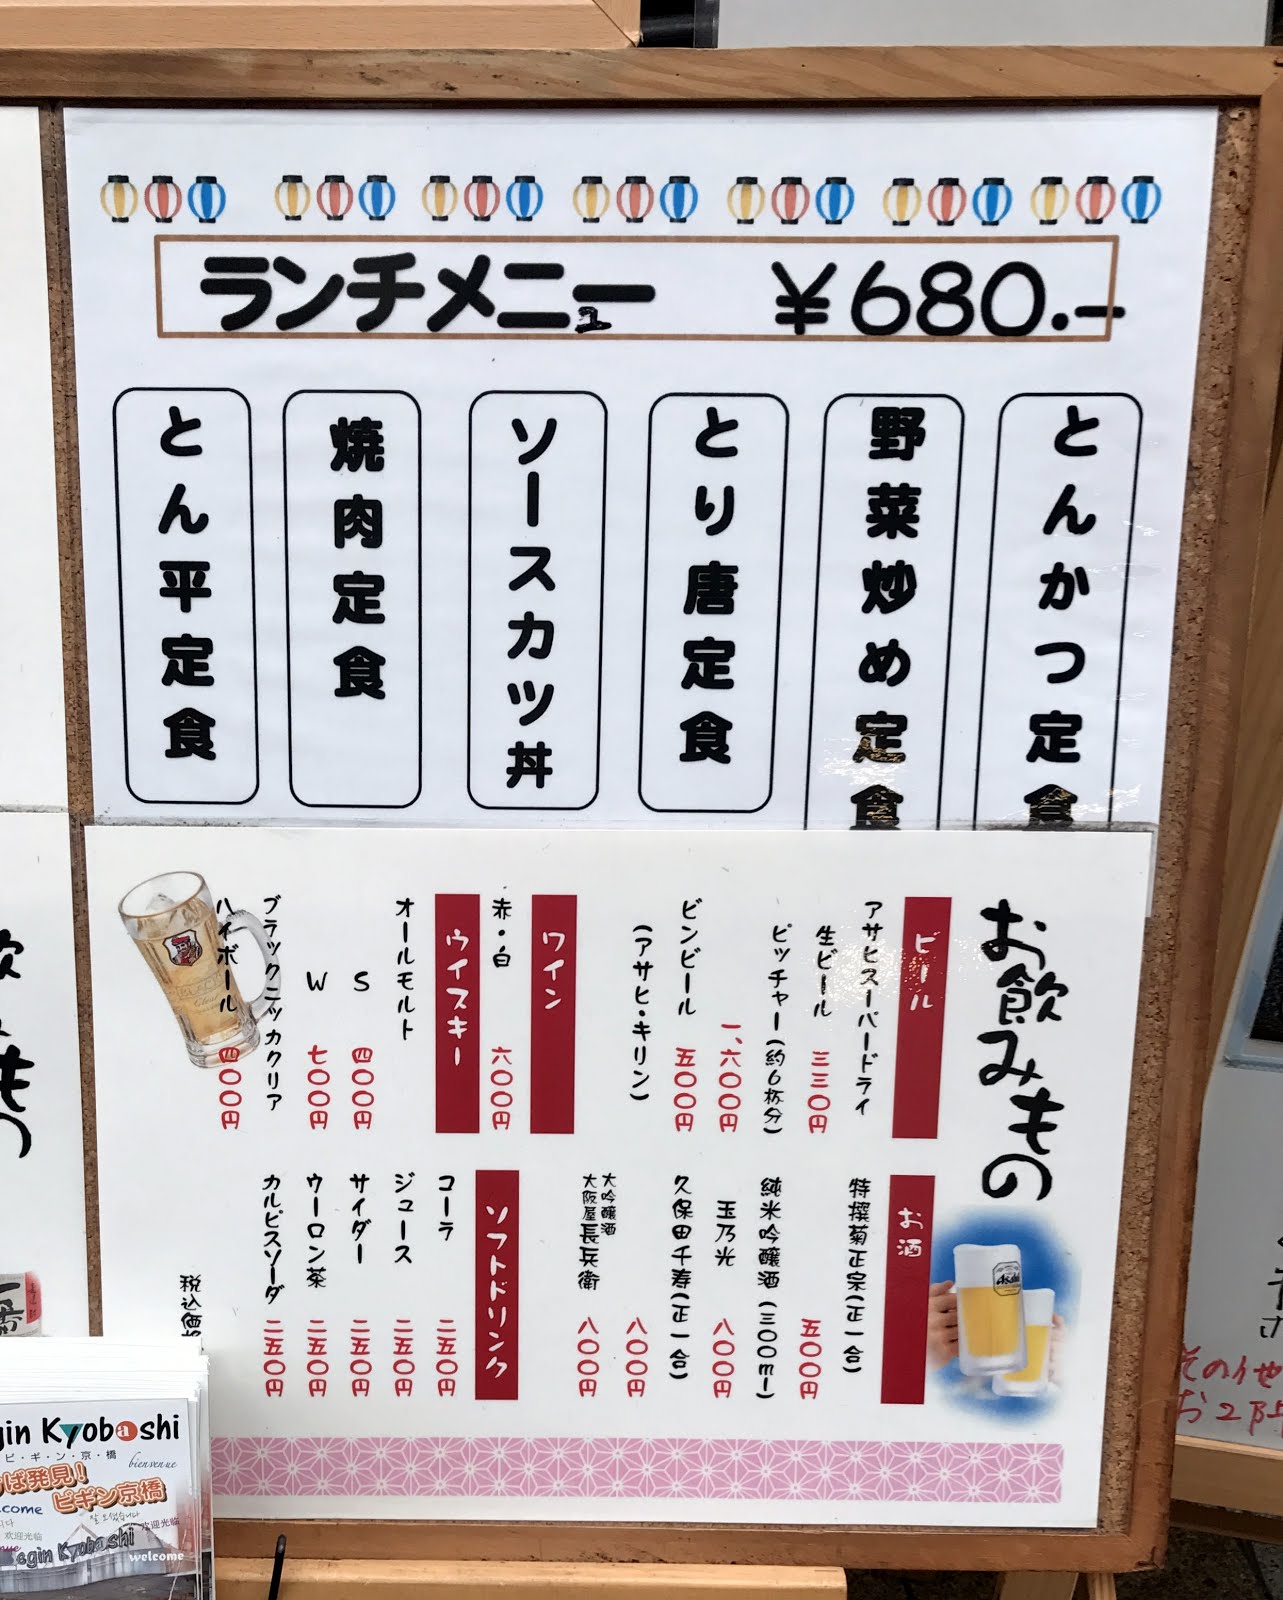 ランチメニュー ¥680.-
とんかつ定食
野菜炒め定食
とり唐定食
ソースカツ丼
焼肉定食
とん平定食
お飲みもの
ビール
アサヒスーパードライ
生ビール 三三〇円
ピッチャー(約6杯分)
一、六〇〇円
ビンビール 五〇〇円
(アサヒ・キリン)
ワイン
赤・白 六〇〇円
ウイスキー
オールモルト
S 四〇〇円
W 七〇〇円
ブラックニッカクリア
ハイボール 四〇〇円
お酒
特撰菊正宗(正一合)
五〇〇円
純米吟醸酒(三〇〇ml)
玉乃光 八〇〇円
久保田千寿(正一合)
八〇〇円
大吟醸酒
大阪屋長兵衛 八〇〇円
ソフトドリンク
コーラ 二五〇円
ジュース 二五〇円
サイダー 二五〇円
ウーロン茶 二五〇円
カルピスソーダ 二五〇円
税込価格
Asahi
gin Kyobashi
ビ・ギ・ン・京・橋
bienvenue
ば発見!
ビギン京橋
come
欢迎光临
欢迎光临
egin Kyobashi
welcome
飲みもの
その他